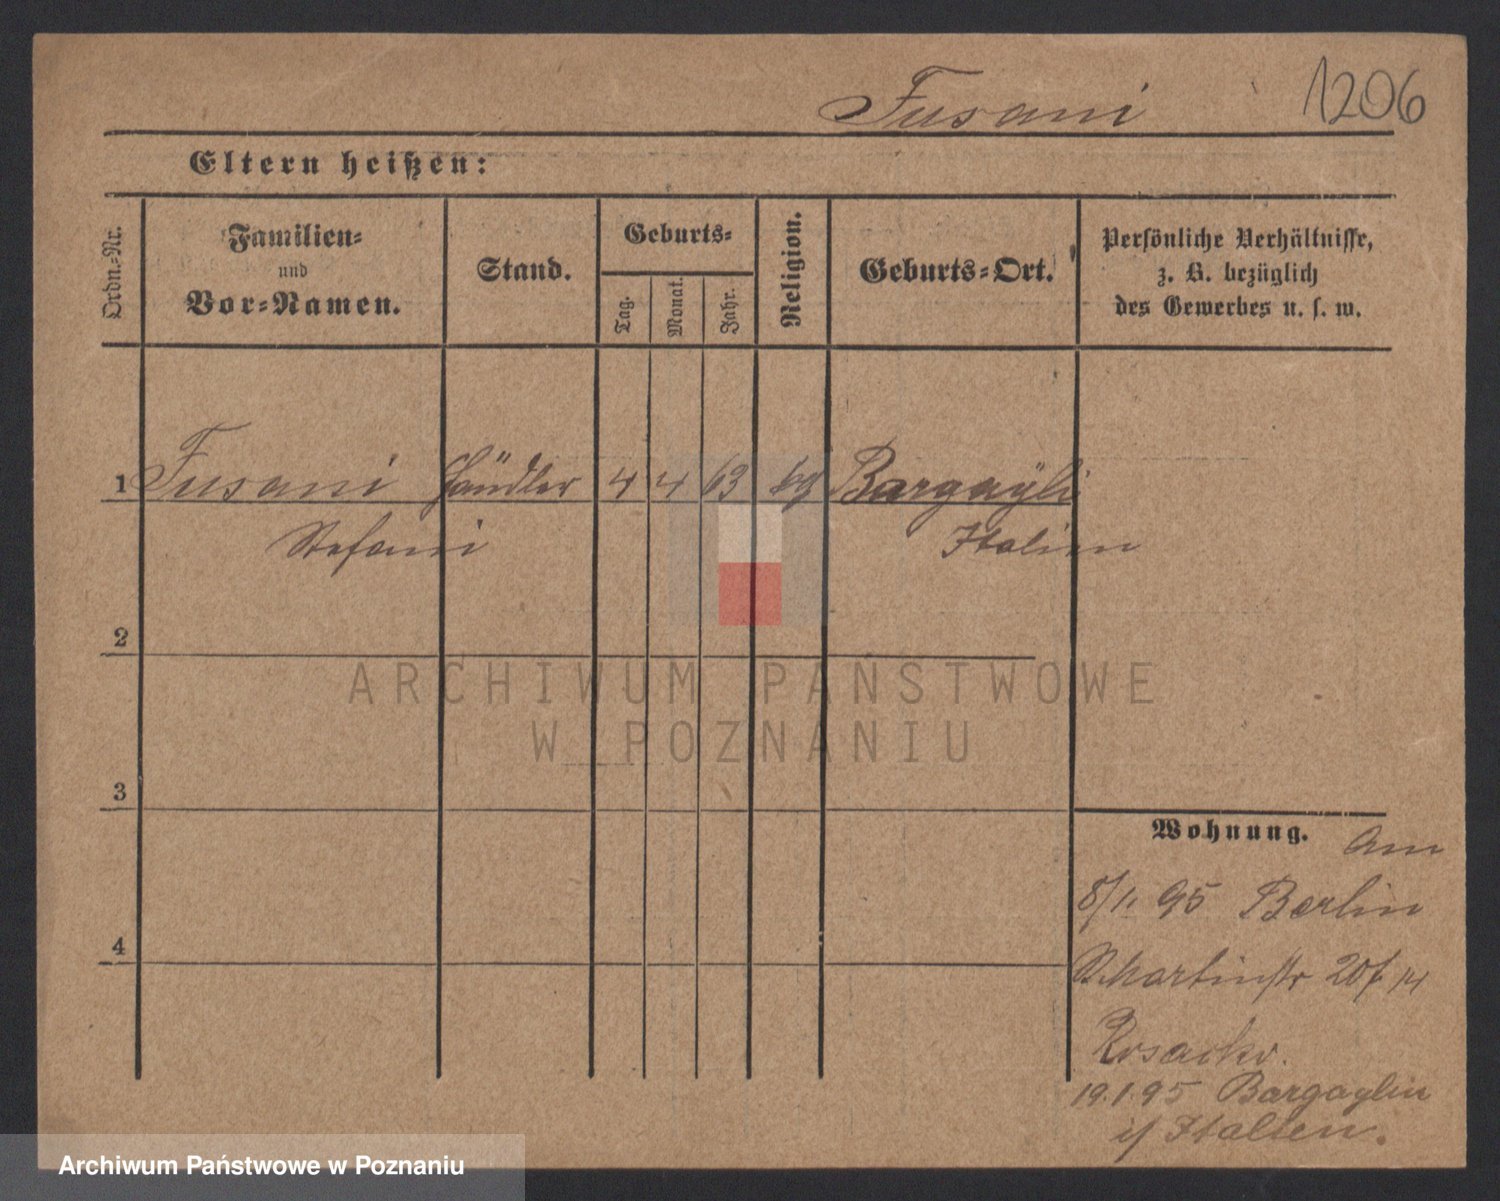 Fusani 1206
Eltern heißen:
Ordn.-Nr.
Familien-
und
Vor-Namen.
Stand.
Geburts-
Tag.
Monat.
Jahr.
Religion.
Geburts-Ort.
Persönliche Verhältnisse,
z. B. bezüglich
des Gewerbes u. s. w.
1 Fusani Händler 4 4 63 kg Bargaÿli
Stefani Italien
2
ARCHIWUM PAŃSTWOWE
W POZNANIU
3
Wohnung. Am
4
8/1. 95 Berlin
St. Martinstr 20
19.1.95 Bargaylin
i/ Italien.
Archiwum Państwowe w Poznaniu